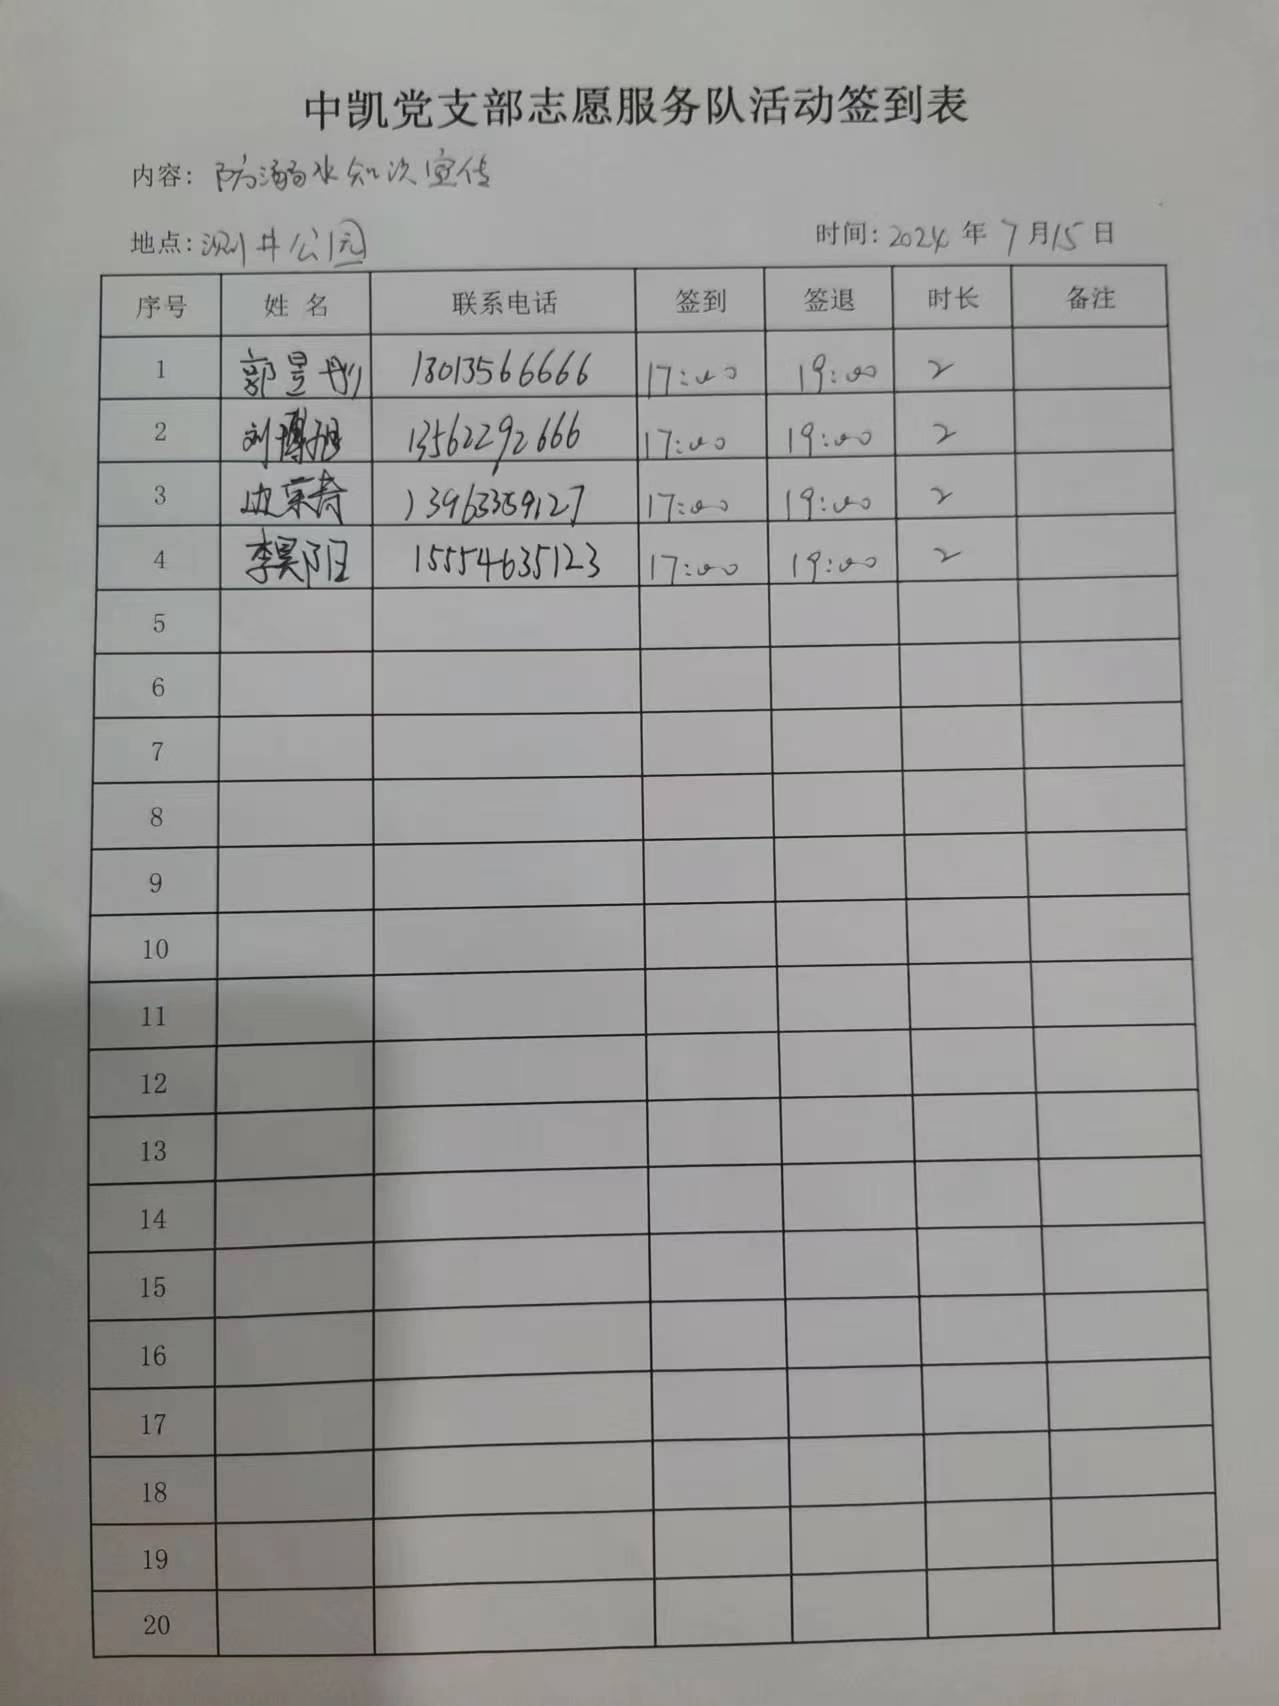 中凯党支部志愿服务队活动签到表
内容: 防溺水知识宣传
地点: 浏井公园 时间: 2024 年 7 月 15 日
序号 姓 名 联系电话 签到 签退 时长 备注
1 郭昱彤 13013566666 17:00 19:00 2
2 刘博旭 13562292666 17:00 19:00 2
3 13963359127 17:00 19:00 2
4 李昊阳 15554635123 17:00 19:00 2
5
6
7
8
9
10
11
12
13
14
15
16
17
18
19
20